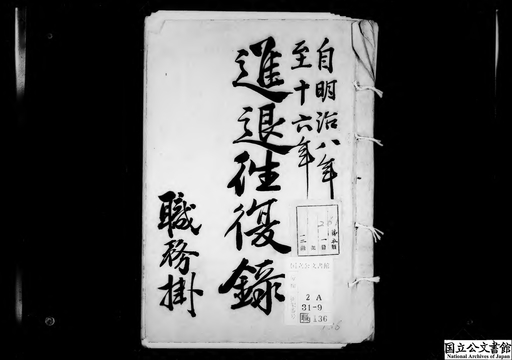 自明治八年
至十六年
進退往復録
職務掛
国立公文書館
2 A
31-9
職 136
136
国立公文書館
National Archives of Japan